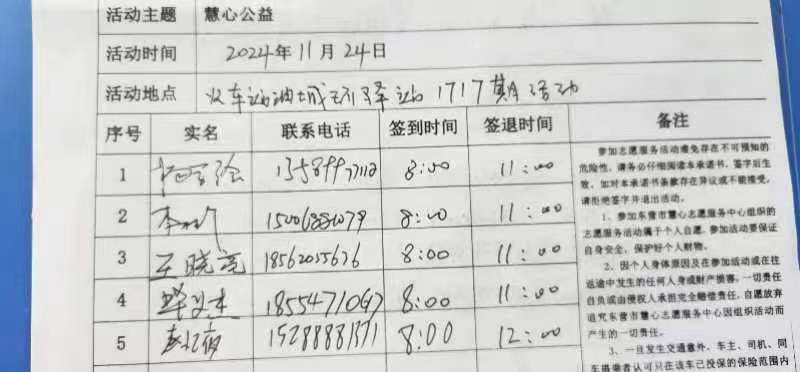 活动主题 慧心公益
活动时间 2024年11月24日
活动地点 火车站油城驿站1717期活动
序号 实名 联系电话 签到时间 签退时间 备注
1 8:00 11:00
2 8:00 11:00
3 王晓亮 18562055676 8:00 11:00
4 8:00 11:00
5 15288881371 8:00 12:00
参加志愿服务活动难免存在不可预知的
危险性,请务必仔细阅读本承诺书,签字后生
效,如对本承诺书条款存在异议或不能接受,
请拒绝签字并退出活动。
1、参加东营市慧心志愿服务中心组织的
志愿服务活动属于个人自愿,参加活动要保证
自身安全,保护好个人财物。
2、因个人身体原因及在参加活动或在往
返途中发生的任何人身或财产损害,一切责任
自负或由侵权人承担完全赔偿责任,自愿放弃
追究东营市慧心志愿服务中心因组织活动而
产生的一切责任。
3、一旦发生交通意外,车主、司机、同
车搭乘者认可只在该车已投保的保险范围内